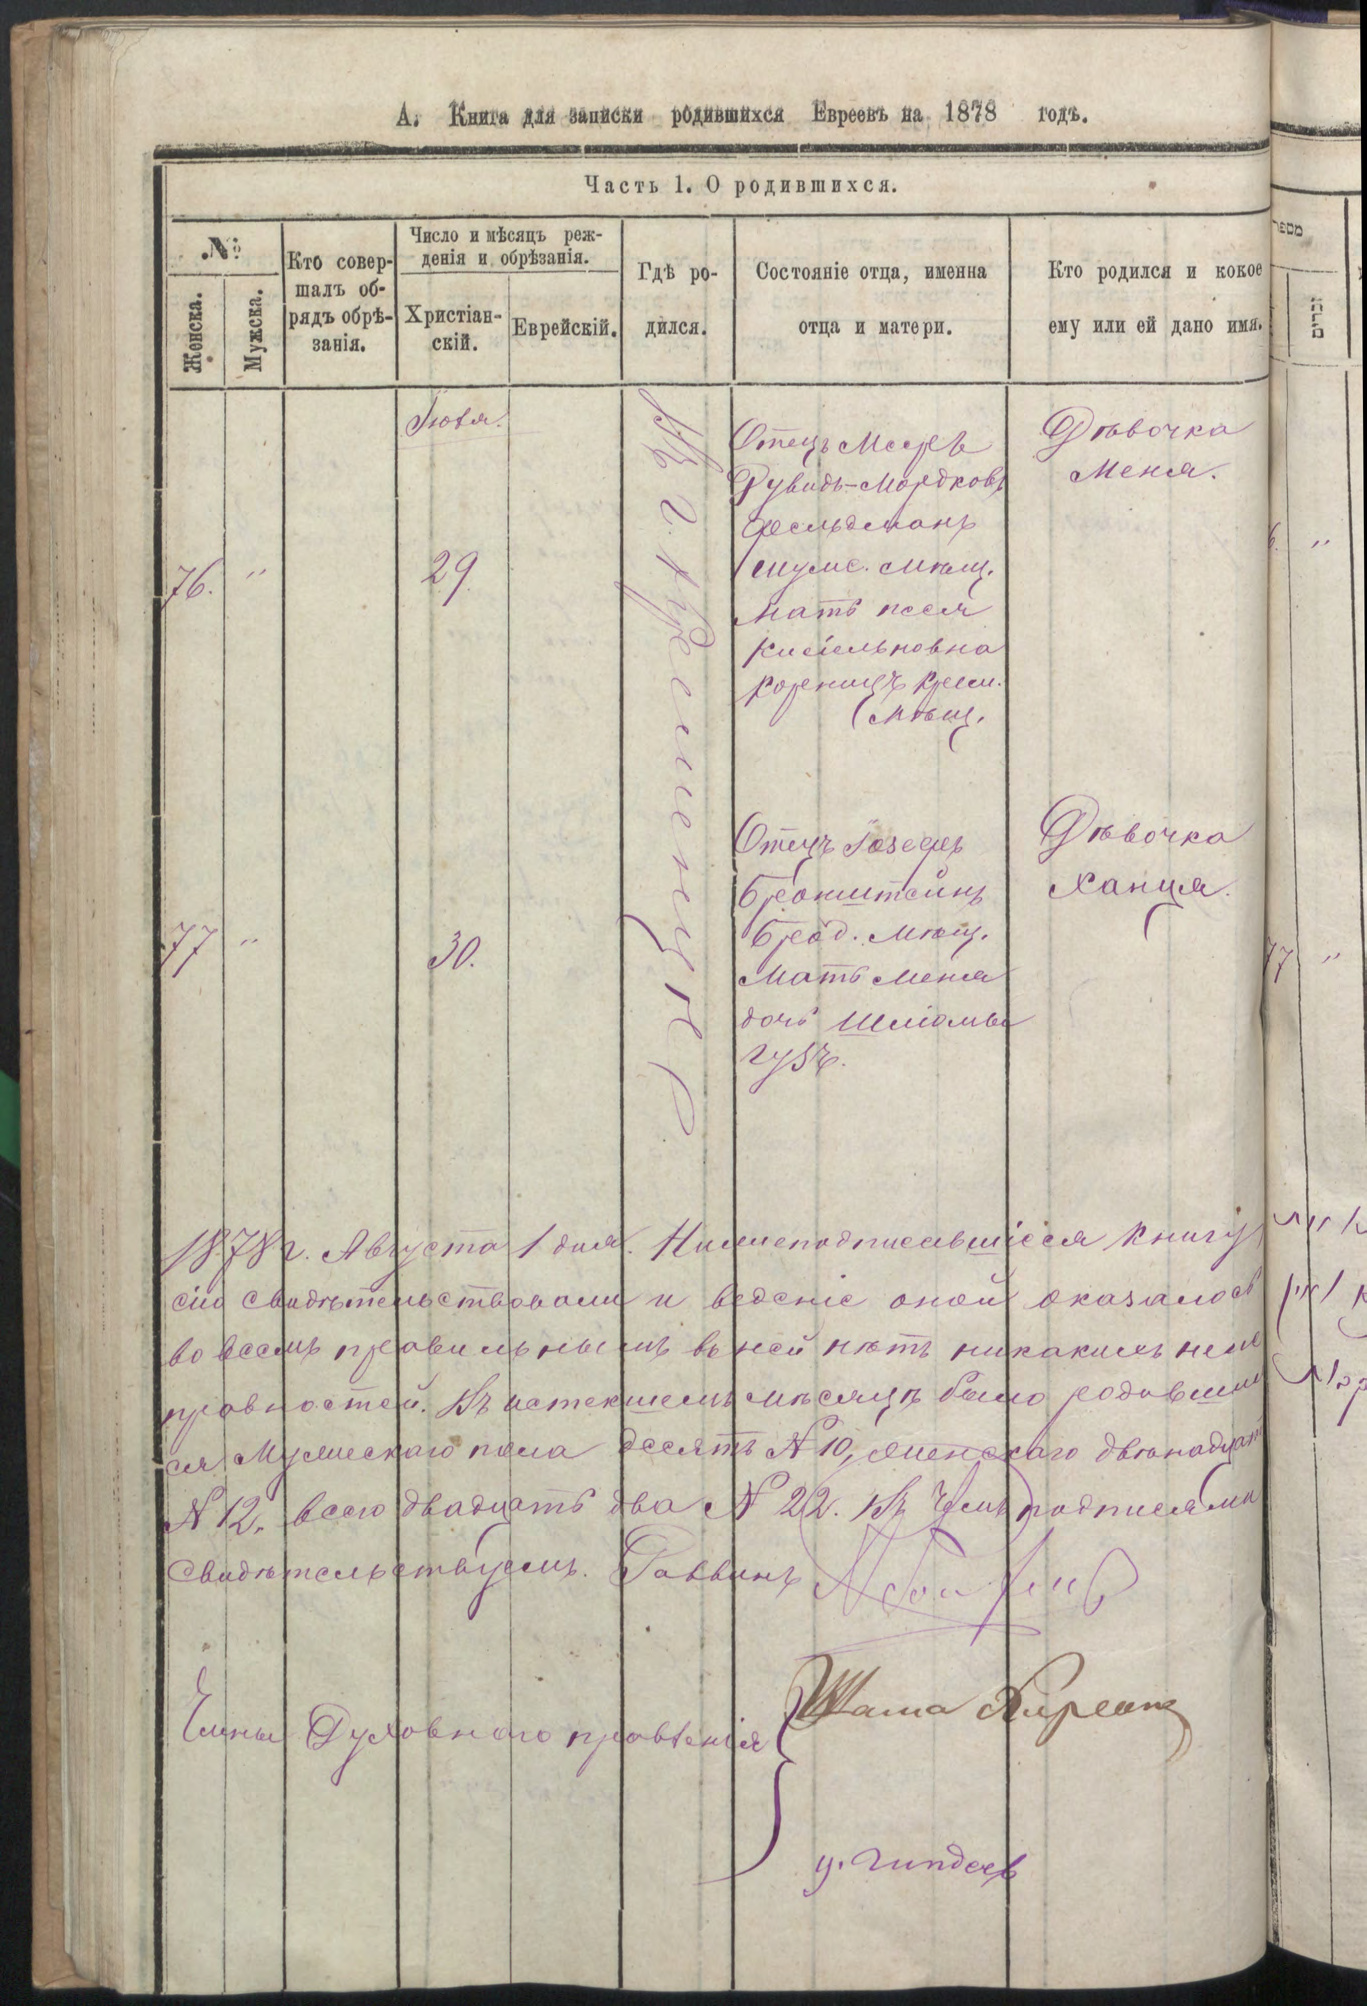 А. Книга для записки родившихся Евреевъ на 1878 годъ.
Часть 1. О родившихся.
№
Женска.
Мужска.
Кто совер-
шалъ об-
рядъ обрѣ-
занія.
Число и мѣсяцъ реж-
денія и обрѣзанія.
Христіан-
скій.
Еврейскій.
Гдѣ ро-
дился.
Состояніе отца, именна
отца и матери.
Кто родился и кокое
ему или ей дано имя.
Въ г. Кременцѣ
Іюля.
76. " 29.
Отецъ Мееръ
Дувидъ-Мордковъ
Фельдманъ
шумс. мѣщ.
Мать песя
кисіельновна
кореницъ крем.
мѣщ.
Дѣвочка
Меня.
77 " 30.
Отецъ Іозефъ
Бронштейнъ
Брод. мѣщ.
Мать Меня
дочь Шліомы
гузъ.
Дѣвочка
Ханця.
1878 г. Августа 1 дня. Нижеподписавшіеся книгу
сію свидѣтельствовали и веденіе оной оказалось
во всемъ правильнымъ въ ней нѣтъ никакихъ неис
правностей. Въ истекшемъ мѣсяцѣ было родивших
ся Мужескаго пола десять N 10, женскаго двѣнадцать
N 12. всего двадцать два N 22. въ чемъ подписями
свидѣтельствуемъ. Раввинъ
Члены Духовного правленія
מספר
זכרים
77 "